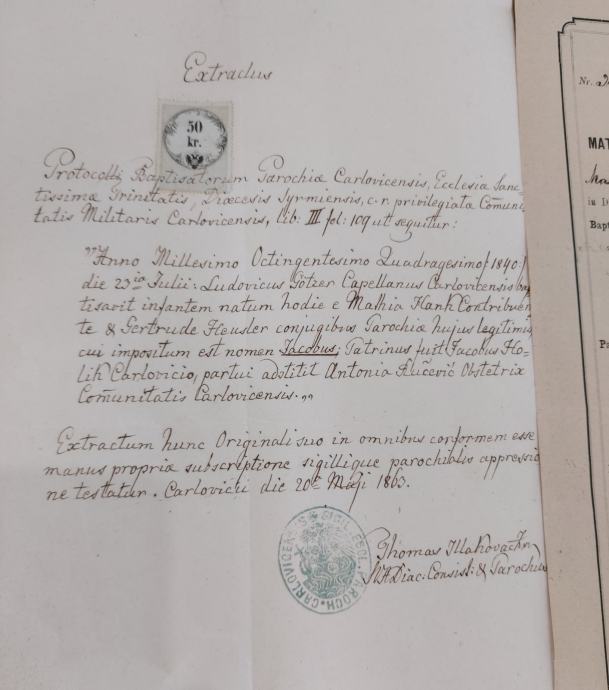 Extractus
50
kr.
Protocolli Baptisatorum Parochiæ Carlovicensis, Ecclesiæ Sanc-
tissimæ Trinitatis, Diœcesis Syrmiensis, c. r. privilegiata Comuni-
tatis Militaris Carlovicensis, lib: III fol: 109 ut sequitur:
"Anno Millesimo Octingentesimo Quadragesimo /1840:/
die 23ia Julii: Ludovicus Götzer Capellanus Carlovicensis bap
tisavit infantem natum hodie e Mathia Hank Contribuen
te & Gertrude Heusler conjugibus Parochiæ hujus legitimis
cui impositum est nomen Jacobus; Patrinus fuit Jacobus Ho-
lik Carlovicio, partui adstitit Antonia Ručević Obstetrix
Comunitatis Carlovicensis."
Extractum hunc Originali suo in omnibus conformem esse
manus propria subscriptione sigillique parochialis appressio
ne testatur. Carlovicii die 20e Maji 1863.
Thomas
Diac: Consist: & Parochus
CARLOVICENSIS SIGIL. ECCL. PAROCH.
Nr.
MAT
in D
Bapt
Pa